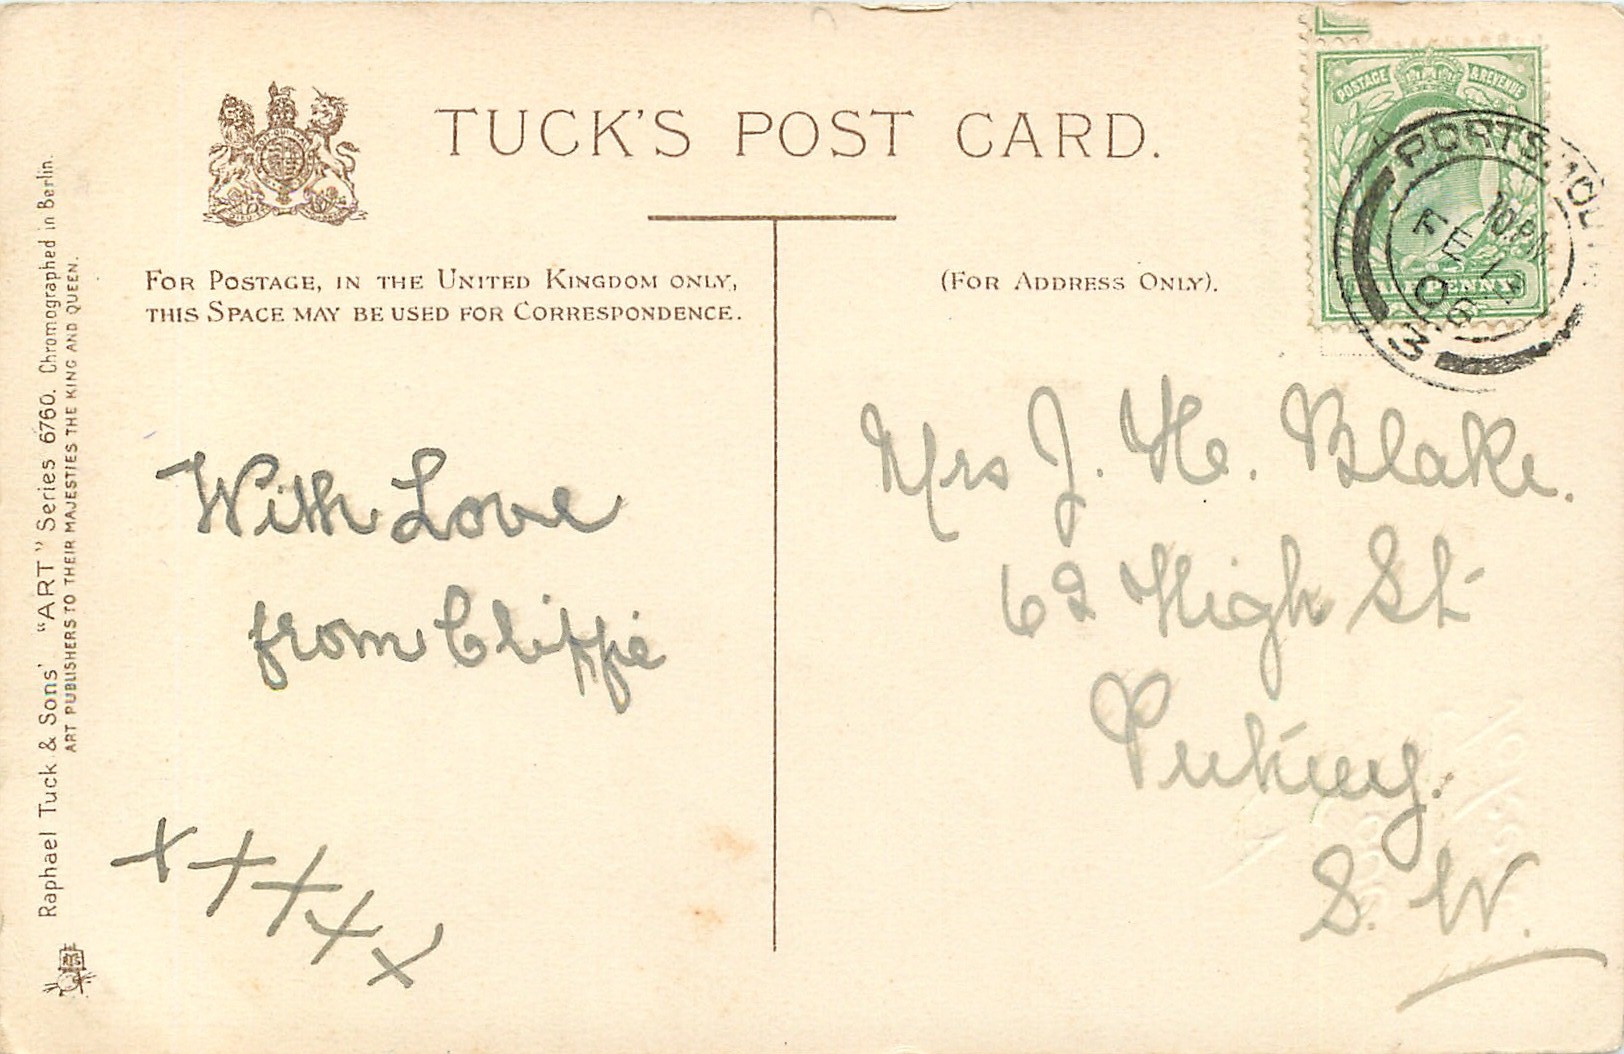 TUCK'S POST CARD.
FOR POSTAGE, IN THE UNITED KINGDOM ONLY,
THIS SPACE MAY BE USED FOR CORRESPONDENCE.
(FOR ADDRESS ONLY).
Raphael Tuck & Sons' "ART" Series 6760. Chromographed in Berlin.
ART PUBLISHERS TO THEIR MAJESTIES THE KING AND QUEEN.
With Love
from Cliffie
x x x x x
POSTAGE & REVENUE
PENNY
PORTSMOU
10.PM
FE 12
Mrs J. H. Blake.
62 High St
Putney.
S. W.